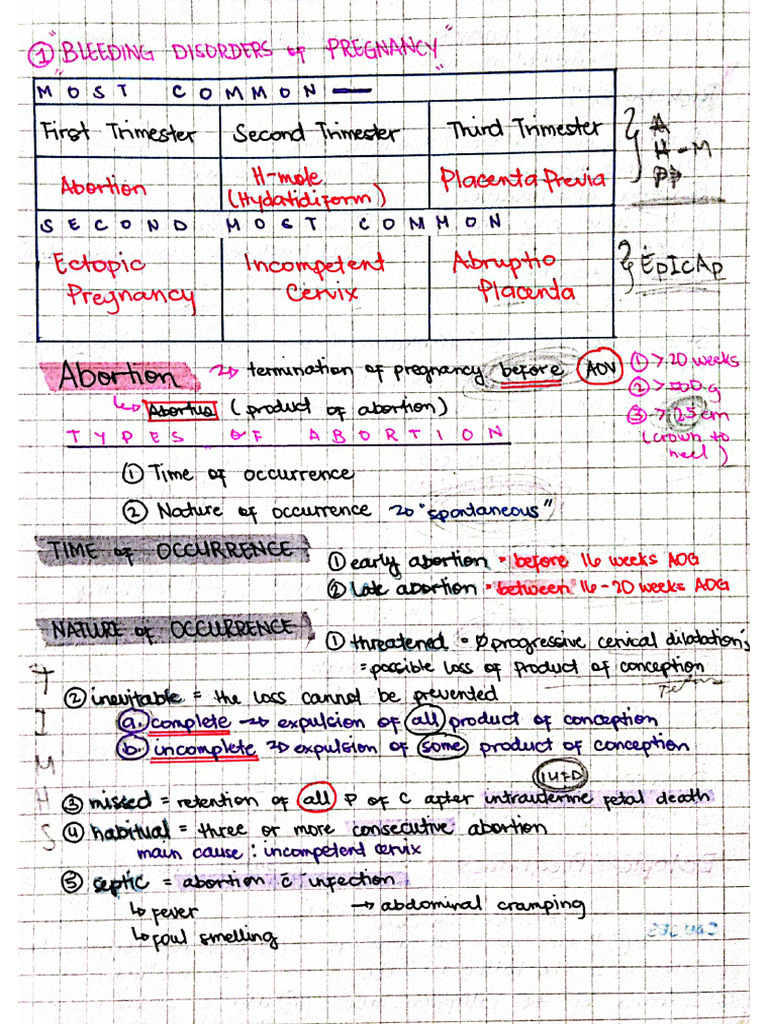 ① "BLEEDING DISORDERS of PREGNANCY"
MOST COMMON —
First Trimester Second Trimester Third Trimester
Abortion H-mole (Hydatidiform) Placenta Previa
A
H-M
PP
SECOND MOST COMMON
Ectopic Pregnancy Incompetent Cervix Abruptio Placenta
EpICAp
Abortion ↝ termination of pregnancy before AOV
① > 20 weeks
② > 500 g
③ > 25 cm
(crown to
heel)
↳ Abortus (product of abortion)
TYPES OF ABORTION
① Time of occurrence
② Nature of occurrence ↝ "spontaneous"
TIME of OCCURRENCE
① early abortion = before 16 weeks AOG
② late abortion = between 16-20 weeks AOG
NATURE of OCCURRENCE
① threatened = Ø progressive cervical dilatation;
= possible loss of product of conception
② inevitable = the loss cannot be prevented
a. complete → expulsion of all product of conception
b. incomplete ↝ expulsion of some product of conception
IUFD
③ missed = retention of all P of C after intrauterine fetal death
④ habitual = three or more consecutive abortion
main cause: incompetent cervix
⑤ septic = abortion c̄ infection
↳ fever → abdominal cramping
↳ foul smelling
T
I
M
H
S